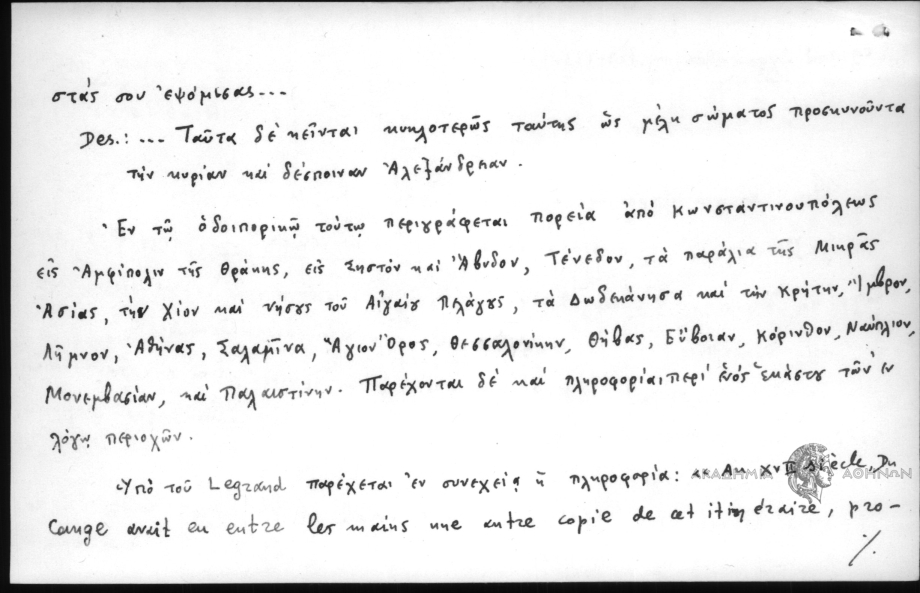 στάς σου ἐψόμισας...
Des.: ... Ταῦτα δὲ κεῖνται κυκλοτερῶς ταύτης ὡς μέλη σώματος προσκυνοῦντα
τὴν κυρίαν καὶ δέσποιναν Ἀλεξάνδρειαν.
Ἐν τῷ ὁδοιπορικῷ τούτῳ περιγράφεται πορεία ἀπὸ Κωνσταντινουπόλεως
εἰς Ἀμφίπολιν τῆς Θράκης, εἰς Σηστὸν καὶ Ἄβυδον, Τένεδον, τὰ παράλια τῆς Μικρᾶς
Ἀσίας, τὴν Χίον καὶ νήσους τοῦ Αἰγαίου Πελάγους, τὰ Δωδεκάνησα καὶ τὴν Κρήτην, Ἴμβρον,
Λῆμνον, Ἀθήνας, Σαλαμῖνα, Ἅγιον Ὄρος, Θεσσαλονίκην, Θήβας, Εὔβοιαν, Κόρινθον, Ναύπλιον,
Μονεμβασίαν, καὶ Παλαιστίνην. Παρέχονται δὲ καὶ πληροφορίαι περὶ ἑνὸς ἑκάστου τῶν ἐν
λόγῳ περιοχῶν.
Ὑπὸ τοῦ Legrand παρέχεται ἐν συνεχείᾳ ἡ πληροφορία: «Au XVII siècle, Du
Cange avait eu entre les mains une autre copie de cet itinéraire, pro-
./.
ΑΚΑΔΗΜΙΑ ΑΘΗΝΩΝ